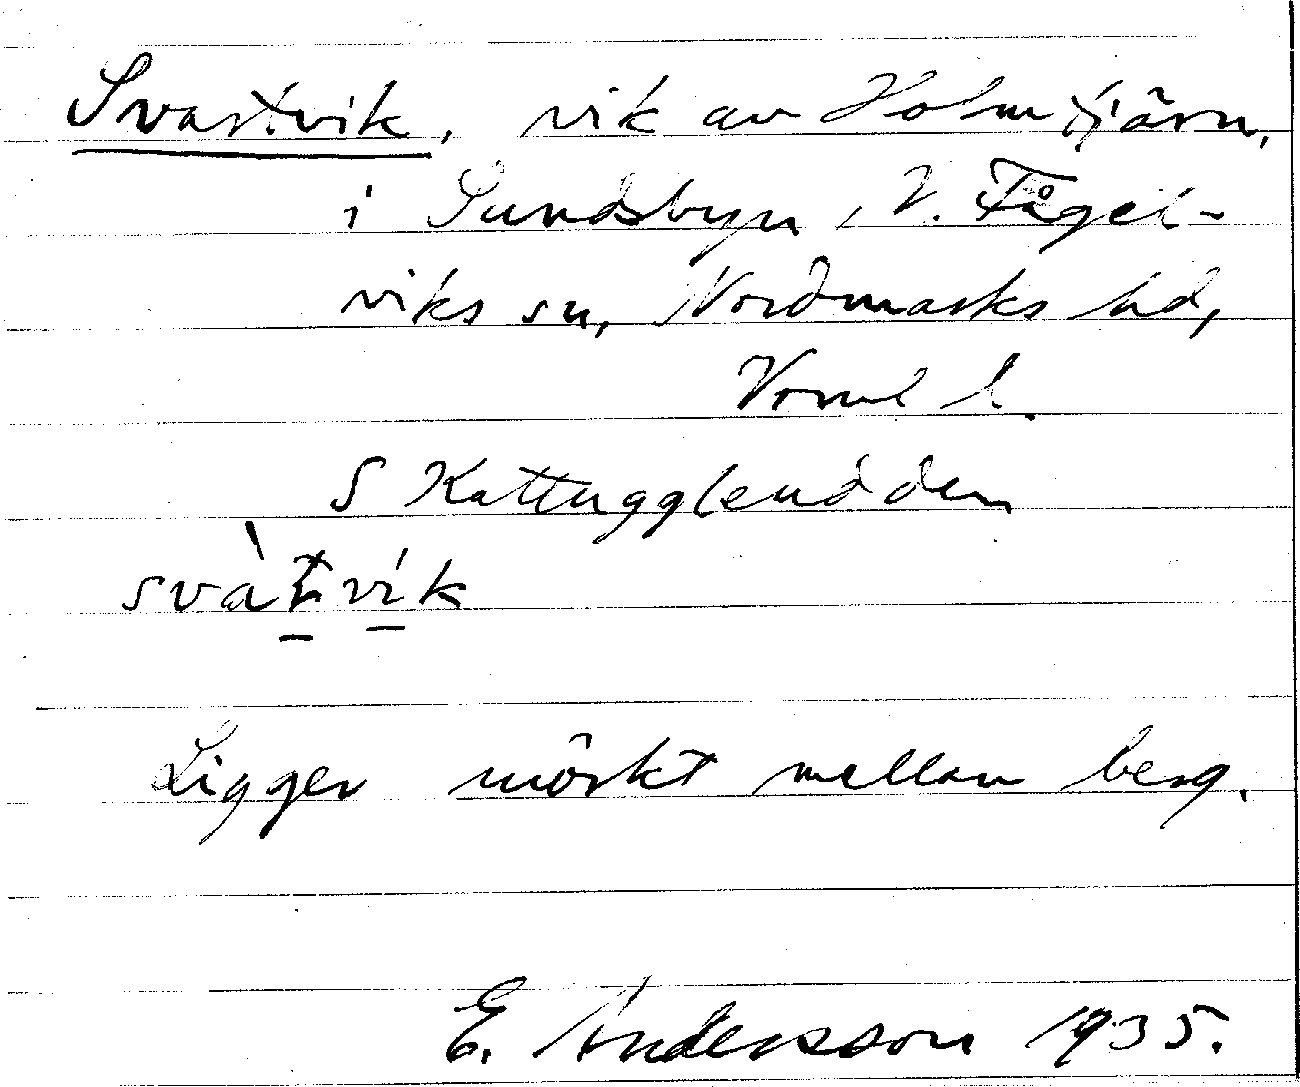 Svartvik, vik av Holmtjärn,
i Sundsbyn, V. Fågel-
viks sn, Nordmarks hd,
Verml l.
S Kattuggleudden
svàt̠ví̠k
Ligger mörkt mellan berg.
E. Andersson 1935.